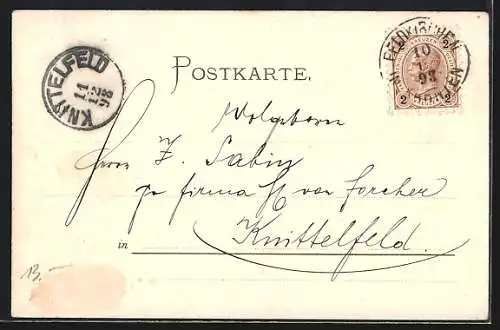 KNITTELFELD
11
12
98
FELDKIRCHEN
10
98
2
2
2
POSTKARTE.
Wolgeborn
Herrn Z. Sabin
pr firma H von Forcher
in Knittelfeld.
13.-